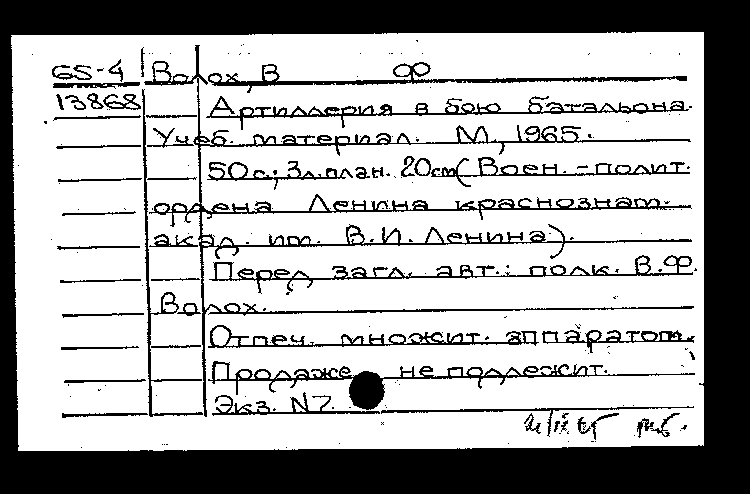 65-4 Волох, В Ф
13868 Артиллерия в бою батальона.
Учеб. материал. М., 1965.
50 с; 3 л. план. 20 cm (Воен. - полит.
ордена Ленина краснознам.
акад. им. В.И. Ленина).
Перед загл. авт.: полк. В.Ф.
Волох.
Отпеч. множит. аппаратом.
Продаже не подлежит.
Экз. N7.